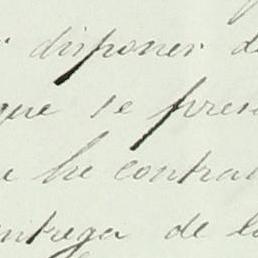 disponer de
que se pres
he contra
entrega de l